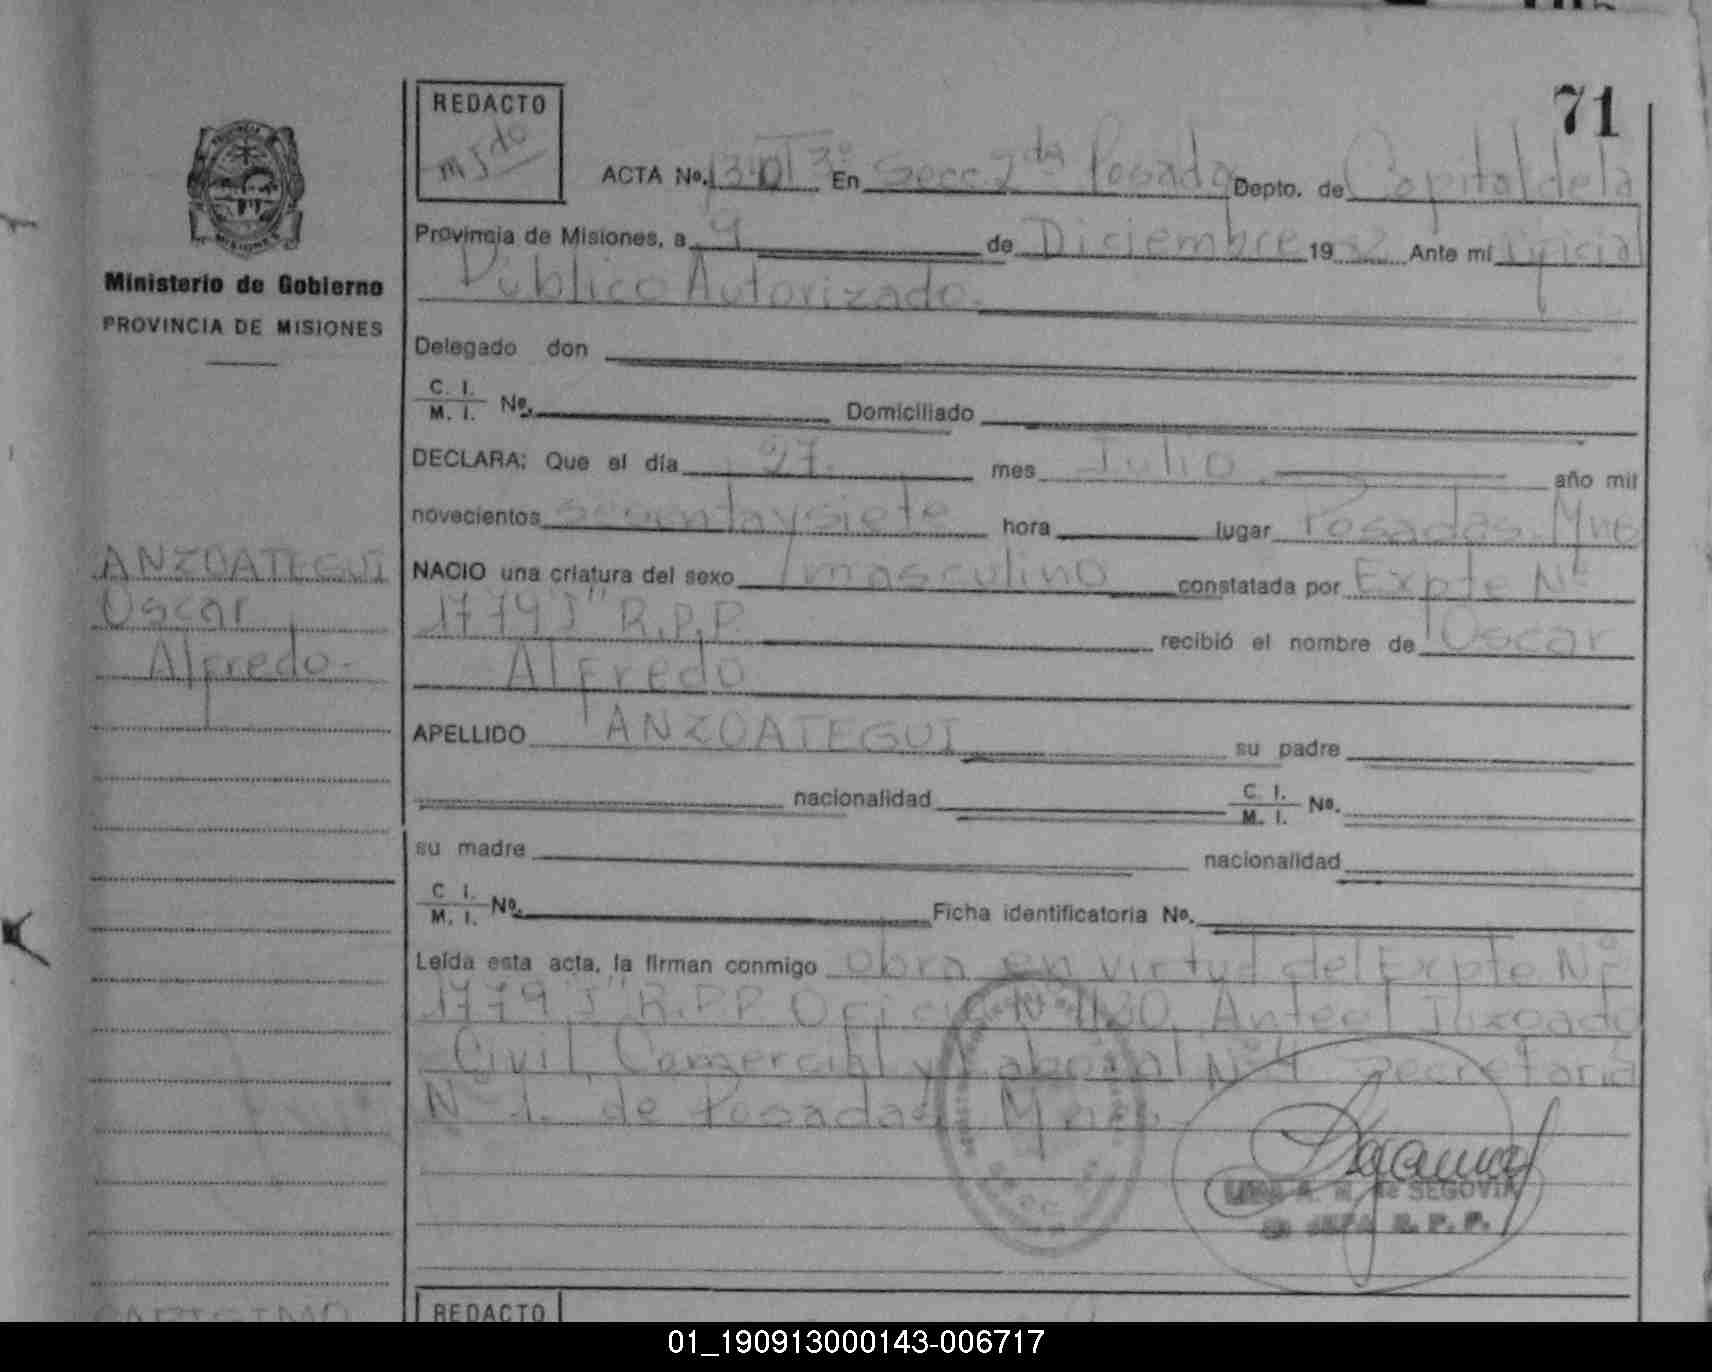 71
REDACTO
ACTA Nº. En Secc 2da Posadas Depto. de Capital de la
Provincia de Misiones, a 9 de Diciembre 19 Ante mí Oficial
Público Autorizado.
Ministerio de Gobierno
PROVINCIA DE MISIONES
Delegado don
C. I.
M. I. Nº. Domiciliado
DECLARA: Que el día 27 mes Julio. año mil
novecientos sesentaysiete hora lugar Posadas. Mnes
ANZOATEGUI
Oscar
Alfredo.-
NACIO una criatura del sexo masculino constatada por Expte Nº
1779 "J" R.P.P. recibió el nombre de Oscar
Alfredo
APELLIDO ANZOATEGUI su padre
nacionalidad C. I.
M. I. Nº.
su madre nacionalidad
C. I.
M. I. Nº. Ficha identificatoria Nº.
Leída esta acta, la firman conmigo obra en virtud del Expte Nº
1779 "J" R.P.P. Oficio Nº 1130. Ante el Juzgado
Civil Comercial y Laboral Nº 4 Secretaria
Nº 1. de Posadas Mnes.
de SEGOVIA
JEFA R. P. P.
REDACTO
01_190913000143-006717